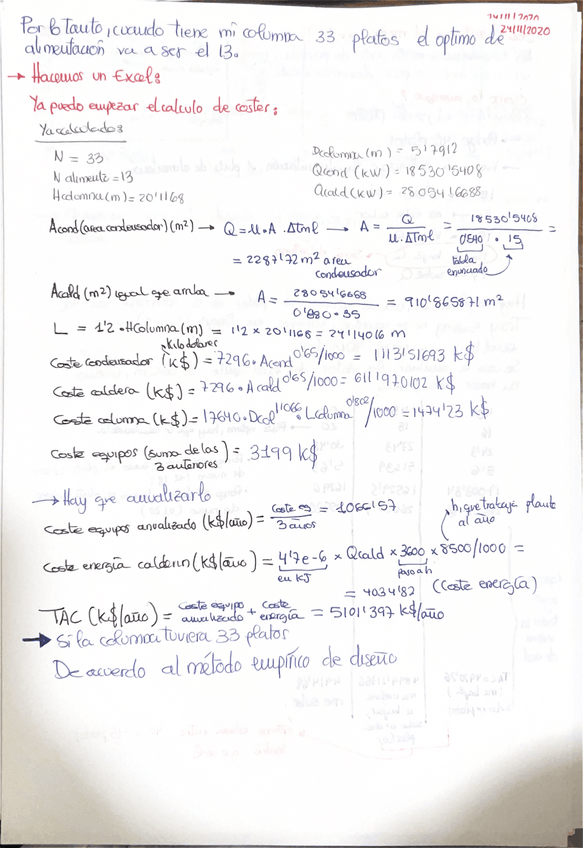 24/11/2020
Por lo tanto, cuando tiene mi columna 33 platos el optimo de
24/11/2020
alimentación va a ser el 13.
→ Hacemos un Excel:
Ya puedo empezar el calculo de costes:
Ya calculados
N = 33
N alimento = 13
Hcolumna (m) = 20'1168
Dcolumna (m) = 5'7912
Qcond (kW) = 18530'5408
Qcald (kW) = 28054'6688
Acond (area condensador) (m²) → Q = U·A·ΔTml → A = Q / U·ΔTml = 18530'5408 / 0'540 · 15 =
tabla enunciado
= 2287'72 m² area condensador
Acald (m²) igual que arriba → A = 28054'6688 / 0'880·35 = 910'865871 m²
L = 1'2 · Hcolumna (m) = 1'2 x 20'1168 = 24'14016 m
kilo dolares
Coste condensador (k$) = 7296·Acond^0'65/1000 = 1113'51693 k$
Coste caldera (k$) = 7296·Acald^0'65/1000 = 611'1970102 k$
Coste columna (k$) = 17640·Dcol^1'1066·Lcolumna^0'802/1000 = 1474'23 k$
Coste equipos (suma de los 3 anteriores) = 3199 k$
→ Hay que anualizarlo
Coste equipos anualizado (k$/año) = Coste eq / 3 años = 1066'57
h, que trabaja planta al año
Coste energía calderin (k$/año) = 4'7e-6 x Qcald x 3600 x 8500/1000 =
en kJ
paso a h
= 4034'82 (Coste energía)
TAC (k$/año) = Coste equipo anualizado + Coste energía = 5101'397 k$/año
→ Si la columna tuviera 33 platos
De acuerdo al método empírico de diseño